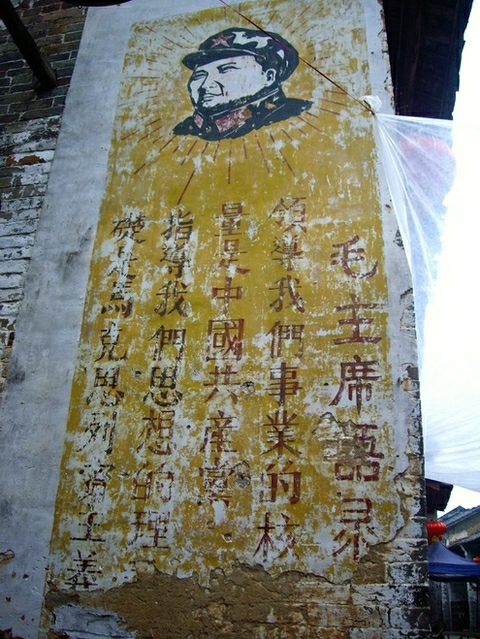 毛主席語录
領導我們事業的核
量是中國共産黨
指導我們思想的理
礎是馬克思列寧主義